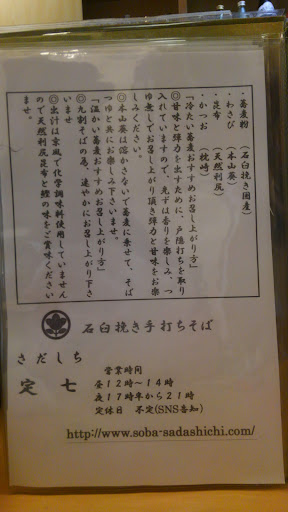 ・蕎麦粉 (石臼挽き国産)
・わさび (本山葵)
・昆布 (天然利尻)
・かつお (枕崎)
『冷たい蕎麦おすすめお召し上がり方』
◎甘味と弾力を出すために、戸隠打ちを取り
入れていますので、先ずは香りを楽しみ、つ
ゆ無しでお召し上がり頂き弾力と甘味をお楽
しみください。
◎本山葵は溶かさないで蕎麦に乗せて、そば
つゆと共にお楽しみ下さいませ。
『温かい蕎麦おすすめお召し上がり方』
◎九割そばの為、速やかにお召し上がり下さ
いませ
◎出汁は京風で化学調味料使用していません
ので天然利尻昆布と鰹の味をご賞味ください
ませ。
石臼挽き手打ちそば
さだしち
定 七
営業時間
昼12時〜14時
夜17時半から21時
定休日 不定(SNS告知)
http://www.soba-sadashichi.com/